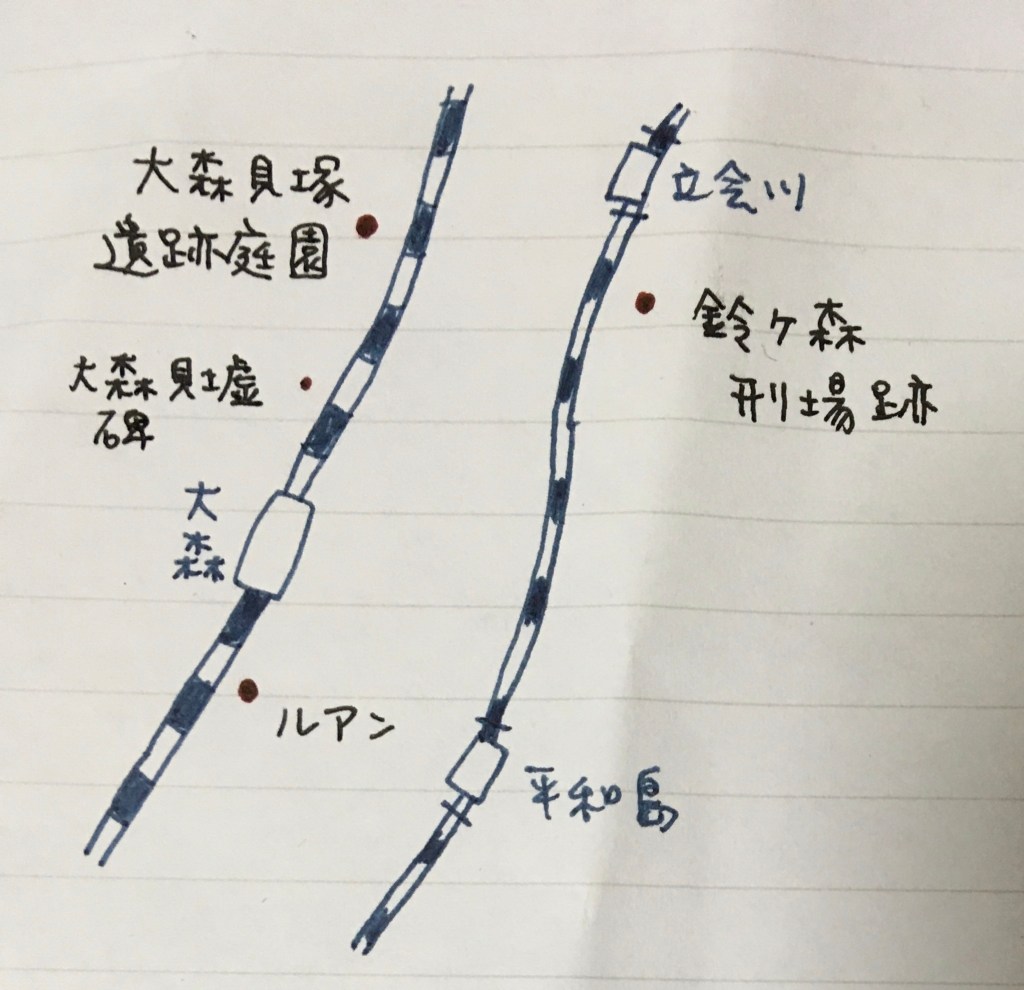 大森貝塚
遺跡庭園
立会川
鈴ヶ森
刑場跡
大森貝墟
碑
大
森
ルアン
平和島